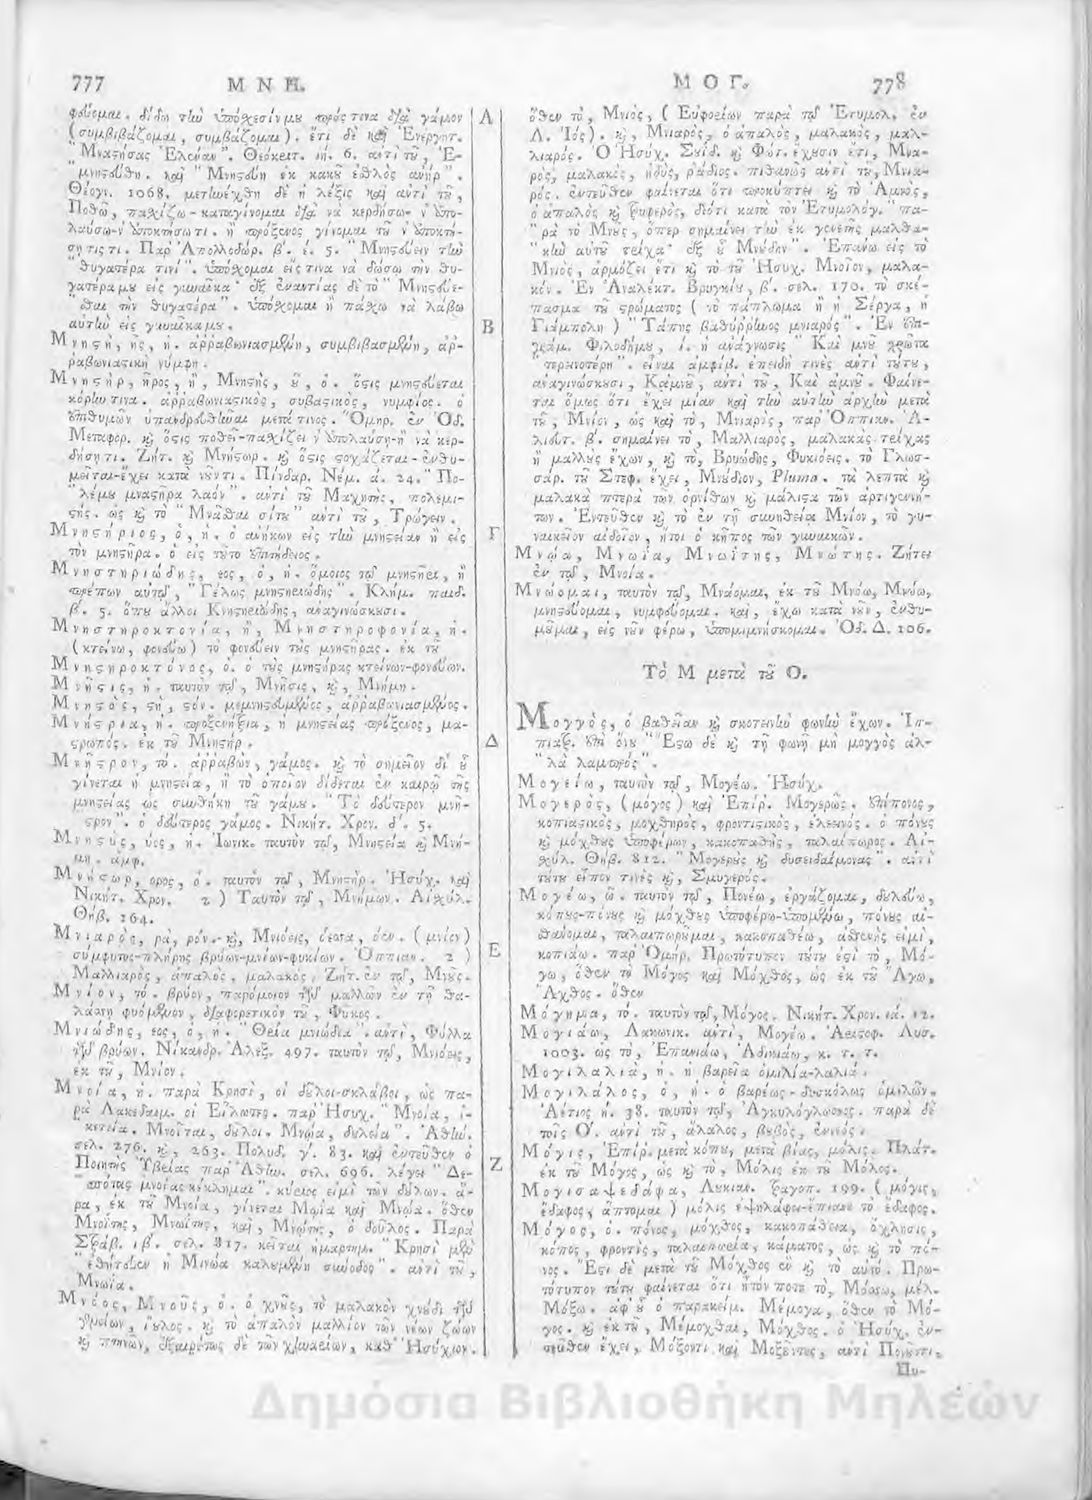 777 ΜΝΗ.
φεύομαι. δίδω τὴν ὑπόσχεσίν μου πρός τινα διὰ γάμον
(συμβιβάζομαι, συμβάζομαι). ἔτι δὲ καὶ Ἐνεργητ.
"Μναστήσας Ἑλέναν". Θεόκριτ. ιή. 6. ἀντὶ τοῦ, Ἐ-
μνηστεύθη. καὶ "Μνηστεύῃ ἐκ κακοῦ ἐσθλὸς ἀνήρ".
Θέογν. 1068. μετηνέχθη δὲ ἡ λέξις καὶ ἀντὶ τοῦ,
Ποθῶ, πασχίζω-καταγίνομαι διὰ νὰ κερδήσω-ν' ἀπο-
λαύσω-ν' ἀποκτήσω τι. ἢ προξένος γίνομαι τοῦ ν' ἀποκτή-
σῃ τις τι. Παρ' Ἀπολλοδώρ. β'. έ. 5. "Μνηστεύειν τὴν
"θυγατέρα τινί". ὑπόσχομαι εἴς τινα νὰ δώσω τὴν θυ-
γατέρα μου εἰς γυναῖκα. ἐξ ἐναντίας δὲ τὸ "Μνηστεύε-
"σθαι τὴν θυγατέρα". ὑπόσχομαι ἢ πάσχω νὰ λάβω
αὐτὴν εἰς γυναῖκα μου.
Μνηστὴ, ῆς, ἡ. ἀρραβωνιασμένη, συμβιβασμένη, ἀρ-
ραβωνιαστικὴ νύμφη.
Μνηστὴρ, ῆρος, ἢ, Μνηστὴς, οῦ, ὁ. ὅστις μνηστεύεται
κόρην τινα. ἀρραβωνιαστικὸς, συβαστικὸς, νυμφίος. ὁ
ἐπιθυμῶν ὑπανδρευθῆναι μετά τινος. Ὅμηρ. ἐν Ὀδ.
Μεταφορ. καὶ ὅστις ποθεῖ-πασχίζει ν' ἀπολαύσῃ-ἢ νὰ κερ-
δήσῃ τι. Ζήτ. καὶ Μνήστωρ. καὶ ὅστις στοχάζεται-ἐνθυ-
μεῖται-ἔχει κατὰ νοῦν τι. Πίνδαρ. Νέμ. ά. 24. "Πο-
"λέμου μναστῆρα λαόν". ἀντὶ τοῦ Μαχητὴς, πολεμι-
στής. ὡς καὶ τὸ "Μνᾶσθαι σίτου" ἀντὶ τοῦ, Τρώγειν.
Μνηστήριος, ὁ, ἡ. ὁ ἀνήκων εἰς τὴν μνηστείαν ἢ εἰς
τὸν μνηστῆρα. ὁ εἰς τοῦτο ἐπιτήδειος.
Μνηστηριώδης, εος, ὁ, ἡ. ὅμοιος τῷ μνηστῆρι, ἢ
πρέπων αὐτῷ, "Γέλως μνηστηριώδης". Κλήμ. παιδ.
β'. 5. ὅπου ἄλλοι Κνηστηριώδης, ἀναγινώσκουσι.
Μνηστηροκτονία, ἢ, Μνηστηροφονία, ἡ.
(κτείνω, φονεύω) τὸ φονεύειν τοὺς μνηστῆρας. ἐκ τοῦ
Μνηστηροκτόνος, ὁ. ὁ τοὺς μνηστῆρας κτείνων-φονεύων.
Μνῆστις, ἡ. ταυτὸν τῷ, Μνῆσις, καὶ, Μνήμη.
Μνηστὸς, στὴ, στόν. μεμνηστευμένος, ἀρραβωνιασμένος.
Μνήστρια, ἡ. προξενήτρια, ἡ μνηστείας πρόξενος, μα-
στρωπός. ἐκ τοῦ Μνηστήρ.
Μνῆστρον, τό. ἀρραβὼν, γάμος. καὶ τὸ σημεῖον δι' οὗ
γίνεται ἡ μνηστεία, ἢ τὸ ὁποῖον δίδεται ἐν καιρῷ τῆς
μνηστείας ὡς συνθήκη τοῦ γάμου. "Τὸ δεύτερον μνῆ-
στρον". ὁ δεύτερος γάμος. Νικήτ. Χρον. δ'. 5.
Μνηστὺς, ύος, ἡ. Ἰωνικ. ταυτὸν τῷ, Μνηστεία καὶ Μνή-
μη. ἀμφ.
Μνήστωρ, ορος, ὁ. ταυτὸν τῷ, Μνηστήρ. Ἡσύχ. καὶ
Νικήτ. Χρον. 2) Ταυτὸν τῷ, Μνήμων. Αἰσχύλ.
Θήβ. 164.
Μνιαρὸς, ρὰ, ρόν.-καὶ, Μνιόεις, όεσσα, όεν. (μνίον)
σύμφυτος-πλήρης βρύων-μνίων-φυκίων. Ὀππιαν. 2)
Μαλλιαρὸς, ἁπαλὸς, μαλακός. Ζήτ. ἐν τῷ, Μνοῦς.
Μνίον, τό. βρύον, παρόμοιον τῶν μαλλῶν ἐν τῇ θα-
λάσσῃ φυόμενον, διαφορετικὸν τοῦ, Φῦκος.
Μνιώδης, εος, ὁ, ἡ. "Θεῖα μνιώδεα". ἀντὶ, Φύλλα
τῶν βρύων. Νίκανδρ. Ἀλεξ. 497. ταυτὸν τῷ, Μνιόεις,
ἐκ τοῦ, Μνίον.
Μνοία, ἡ. παρὰ Κρησὶ, οἱ δοῦλοι-σκλάβοι, ὡς πα-
ρὰ Λακεδαιμ. οἱ Εἵλωτες. παρ' Ἡσυχ. "Μνοία, ἱ-
"κετεία. Μνοῖται, δοῦλοι. Μνῴα, δουλεία". Ἀθήν.
σελ. 276. καὶ, 263. Πολυδ. γ'. 83. καὶ ἐντεῦθεν ὁ
Ποιητὴς Ὑβρίας παρ' Ἀθήν. σελ. 696. λέγει "Δε-
"σπότας μνοίας κέκλημαι". κύριος εἰμὶ τῶν δούλων. ἄ-
ρα, ἐκ τοῦ Μνοία, γίνεται Μωΐα καὶ Μνῴα. ὅθεν
Μνοίτης, Μνωίτης, καὶ, Μνῴτης, ὁ δοῦλος. Παρὰ
Στράβ. ιβ'. σελ. 817. κεῖται ἡμαρτημ. "Κρησὶ μὲν
"ἐθήτευεν ἡ Μινώα καλουμένη σύνοδος". ἀντὶ τοῦ,
Μνωία.
Μνόος, Μνοῦς, ὁ. ὁ χνοῦς, τὸ μαλακὸν χνούδι τῶν
γενείων, ἴουλος. καὶ τὸ ἁπαλὸν μαλλίον τῶν νέων ζώων
καὶ πτηνῶν, ἐξαιρέτως δὲ τῶν χηναρίων, καθ' Ἡσύχιον.
Α
Β
Γ
Δ
Ε
Ζ
ΜΟΓ. 778
ὅθεν τὸ, Μνιὸς, (Εὐφορίων παρὰ τῷ Ἐτυμολ. ἐν
Λ. Ἰός). καὶ, Μνιαρὸς, ὁ ἁπαλὸς, μαλακὸς, μαλ-
λιαρός. Ὁ Ἡσύχ. Σουίδ. καὶ Φώτ. ἔχουσιν ἔτι, Μνα-
ρὸς, μαλακὸς, ἡδὺς, ῥᾴδιος. πιθανῶς ἀντὶ τοῦ, Μνια-
ρός. ἐντεῦθεν φαίνεται ὅτι προκύπτει καὶ τὸ Ἀμνὸς,
ὁ ἁπαλὸς καὶ τρυφερὸς, διότι κατὰ τὸν Ἐτυμολόγ. "πα-
"ρὰ τὸ Μνοῦς, ὅπερ σημαίνει τὴν ἐκ γενετῆς μαλθα-
"κὴν αὐτοῦ τρίχα· ἐξ οὗ Μνούδην". Ἐπάνω εἰς τὸ
Μνιὸς, ἁρμόζει ἔτι καὶ τὸ τοῦ Ἡσυχ. Μνοῖον, μαλα-
κόν. Ἐν Ἀναλέκτ. Βρυγκίου, β'. σελ. 170. τὸ σκέ-
πασμα τοῦ στρώματος (τὸ πάπλωμα ἢ ἡ Σέργα, ἡ
Γιάμπολη) "Τάπης βαθύρρηνος μνιαρός". Ἐν Ἐπι-
γράμ. Φιλοδήμου, ί. ἡ ἀνάγνωσις "Καὶ μνοῦ χρῶτα
"τερεινοτέρη". εἶναι ἀμφίβ. ἐπειδή τινες ἀντὶ τούτου,
ἀναγινώσκουσι, Κἀμνοῦ, ἀντὶ τοῦ, Καὶ ἀμνοῦ. Φαίνε-
ται ὅμως ὅτι ἔχει μίαν καὶ τὴν αὐτὴν ἀρχὴν μετὰ
τοῦ, Μνίον, ὡς καὶ τὸ, Μνιαρὸς, παρ' Ὀππιαν. Ἁ-
λιευτ. β'. σημαίνει τὸ, Μαλλιαρὸς, μαλακὰς τρίχας
ἢ μαλλοὺς ἔχων, καὶ τὸ, Βρυώδης, Φυκιόεις. τὸ Γλωσ-
σάρ. τοῦ Στεφ. ἔχει, Μνούδιον, Pluma. τὰ λεπτὰ καὶ
μαλακὰ πτερὰ τῶν ὀρνίθων καὶ μάλιστα τῶν ἀρτιγεννή-
των. Ἐντεῦθεν καὶ τὸ ἐν τῇ συνηθείᾳ Μνίον, τὸ γυ-
ναικεῖον αἰδοῖον, ἤτοι ὁ κῆπος τῶν γυναικῶν.
Μνῴα, Μνωία, Μνωίτης, Μνώτης. Ζήτει
ἐν τῷ, Μνοία.
Μνώομαι, ταυτὸν τῷ, Μνάομαι, ἐκ τοῦ Μνόω, Μνώω,
μνηστεύομαι, νυμφεύομαι. καὶ, ἔχω κατὰ νοῦν, ἐνθυ-
μοῦμαι, εἰς νοῦν φέρω, ὑπομιμνήσκομαι. Ὀδ. Δ. 106.
Τὸ Μ μετὰ τοῦ Ο.
Μογγὸς, ὁ βαθεῖαν καὶ σκοτεινὴν φωνὴν ἔχων. Ἱπ-
πιατρ. ἐπὶ ὄνου "Ἔστω δὲ καὶ τῇ φωνῇ μὴ μογγὸς ἀλ-
"λὰ λαμπρός".
Μογείω, ταυτὸν τῷ, Μογέω. Ἡσύχ.
Μογερὸς, (μόγος) καὶ Ἐπίρ. Μογερῶς. ἐπίπονος,
κοπιαστικὸς, μοχθηρὸς, φροντιστικὸς, ἐλεεινός. ὁ πόνους
καὶ μόχθους ὑποφέρων, κακοπαθὴς, ταλαίπωρος. Αἰ-
σχύλ. Θήβ. 812. "Μογεροὺς καὶ δυσειδαίμονας". ἀντὶ
τούτου εἶπόν τινες καὶ, Σμυγερός.
Μογέω, ῶ. ταυτὸν τῷ, Πονέω, ἐργάζομαι, δουλεύω,
κόπους-πόνους καὶ μόχθους ὑποφέρω-ὑπομένω, πόνους αἰ-
σθάνομαι, ταλαιπωροῦμαι, κακοπαθέω, ἀσθενὴς εἰμὶ,
κοπιάω. παρ' Ὁμήρ. Πρωτότυπον τούτου ἐστὶ τὸ, Μό-
γω, ὅθεν τὸ Μόγος καὶ Μόχθος, ὡς ἐκ τοῦ Ἄγω,
Ἄχθος. ὅθεν
Μόγημα, τό. ταυτὸν τῷ, Μόγος. Νικήτ. Χρον. ιά. 12.
Μογιάω, Λακωνικ. ἀντὶ, Μογέω. Ἀριστοφ. Λυσ.
1003. ὡς τὸ, Ἐπανιάω, Ἀδικιάω, κ. τ. τ.
Μογιλαλιὰ, ἡ. ἡ βαρεῖα ὁμιλία-λαλιά.
Μογιλάλος, ὁ, ἡ. ὁ βαρέως-δυσκόλως ὁμιλῶν.
Ἀέτιος ή. 38. ταυτὸν τῷ, Ἀγκυλόγλωσσος. παρὰ δὲ
τοῖς Ο'. ἀντὶ τοῦ, ἄλαλος, βωβὸς, ἐννεός.
Μόγις, Ἐπίρ. μετὰ κόπου, μετὰ βίας, μόλις. Πλάτ.
ἐκ τοῦ Μόγος, ὡς καὶ τὸ, Μόλις ἐκ τοῦ Μόλος.
Μογισαψεδάφα, Λυκιαν. τραγοπ. 199. (μόγις,
ἔδαφος, ἅπτομαι) μόλις ἐψηλάφει-ἐπίανε τὸ ἔδαφος.
Μόγος, ὁ. πόνος, μόχθος, κακοπάθεια, ὄχλησις,
κόπος, φροντὶς, ταλαιπωρία, κάματος, ὡς καὶ τὸ πό-
νος. Ἔστι δὲ μετὰ τοῦ Μόχθος ἓν καὶ τὸ αὐτό. Πρω-
τότυπον τούτου φαίνεται ὅτι ἦτόν ποτε τὸ, Μόσσω, μέλ.
Μόξω. ἀφ' οὗ ὁ παρακείμ. Μέμογα, ὅθεν τὸ Μό-
γος. καὶ ἐκ τοῦ, Μέμοχθαι, Μόχθος. ὁ Ἡσύχ. ἐν-
τεῦθεν ἔχει, Μόξοντι καὶ Μοξεῦντες, ἀντὶ Πονοῦντι,
Πο-
Δημόσια Βιβλιοθήκη Μηλεών